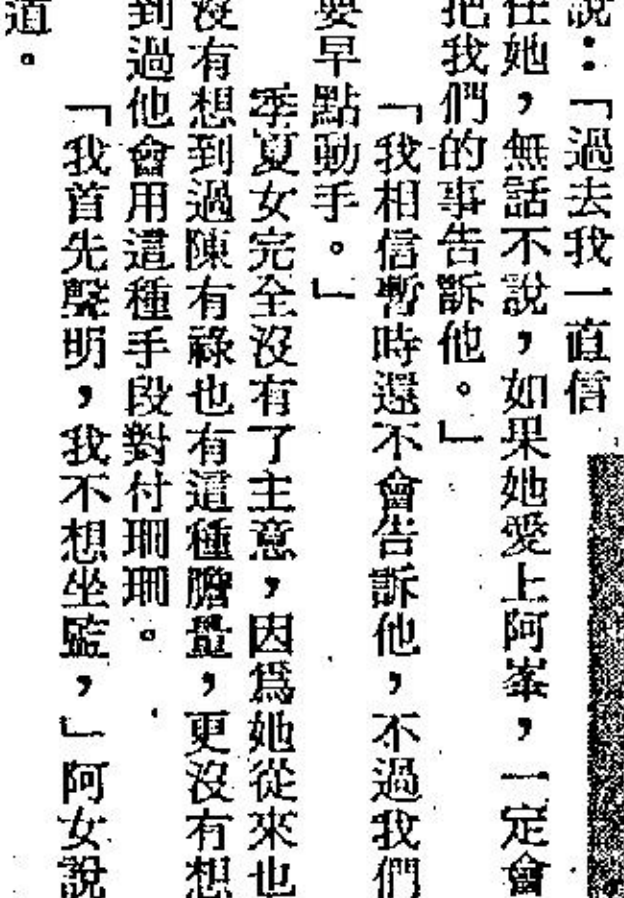 說：「過去我一直信
任她，無話不說，如果她愛上阿峯，一定會
把我們的事告訴他。」
「我相信暫時還不會告訴他，不過我們
要早點動手。」
季夏女完全沒有了主意，因爲她從來也
沒有想到過陳有祿也有這種膽量，更沒有想
到過他會用這種手段對付珊珊。
「我首先聲明，我不想坐監，」阿女說
道。